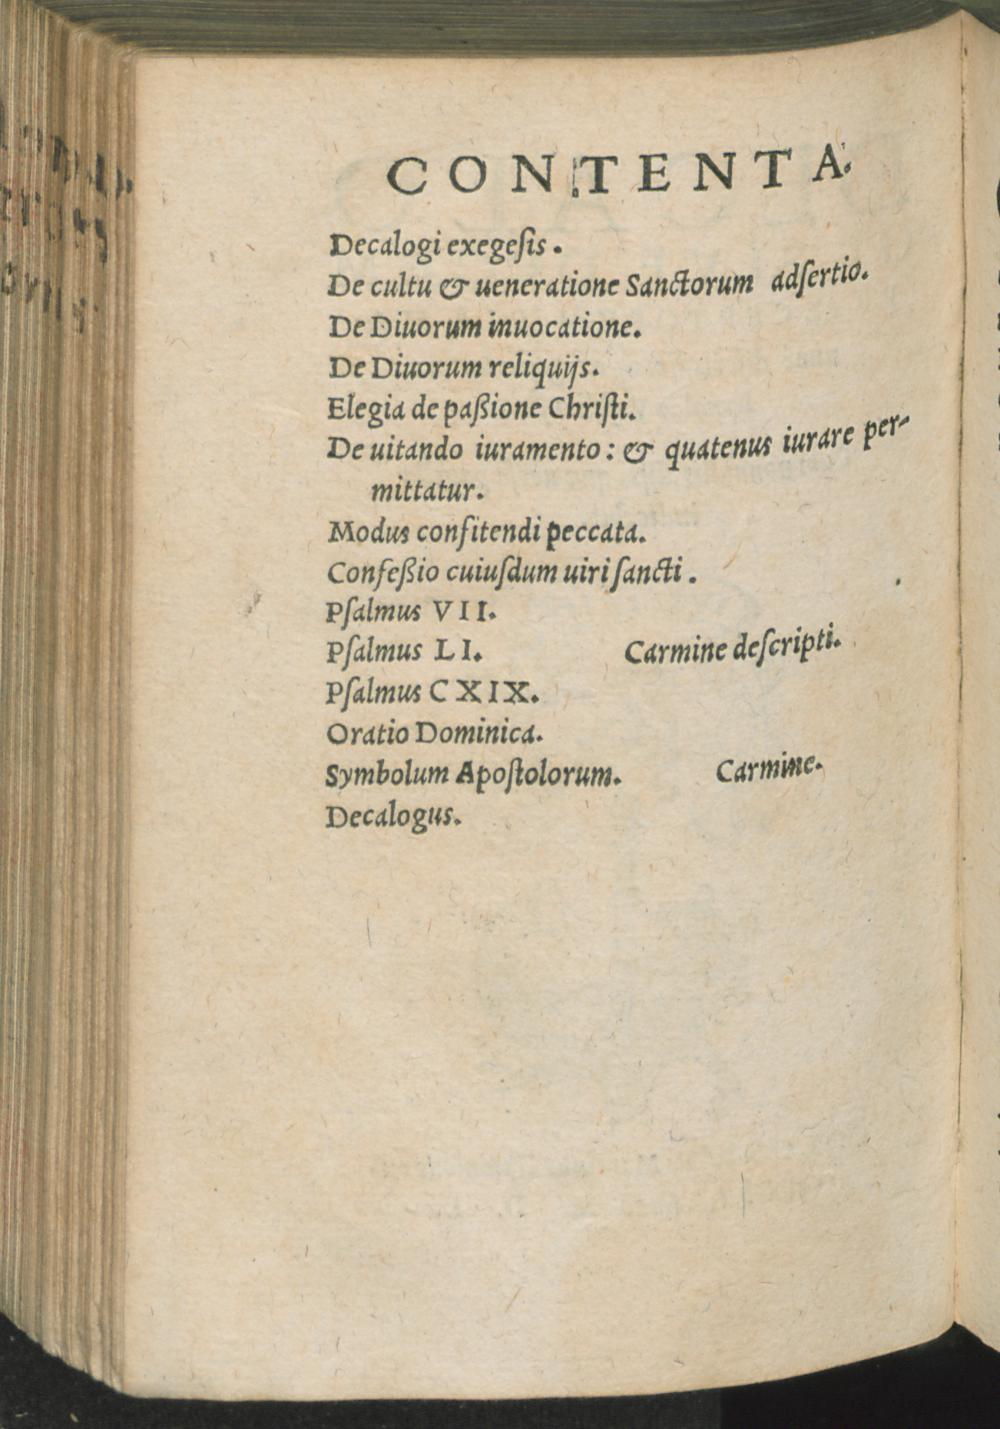 CONTENTA.
Decalogi exegeſis.
De cultu & ueneratione Sanctorum adſertio.
De Diuorum inuocatione.
De Diuorum reliquijs.
Elegia de paßione Chriſti.
De uitando iuramento: & quatenus iurare per-
mittatur.
Modus confitendi peccata.
Confeßio cuiuſdum uiri ſancti.
Pſalmus VII.
Pſalmus LI. Carmine deſcripti.
Pſalmus CXIX.
Oratio Dominica.
Symbolum Apoſtolorum. Carmine.
Decalogus.